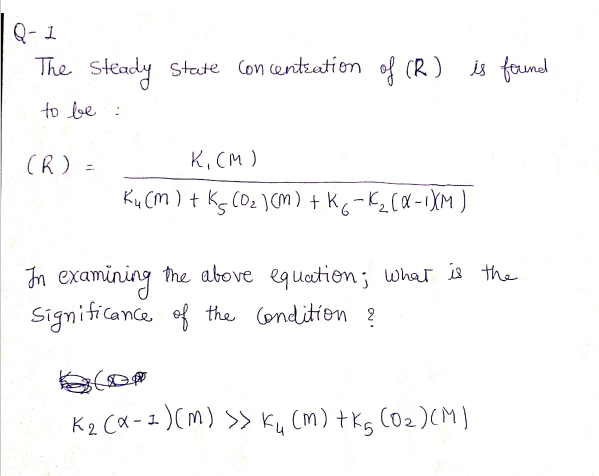 Q- 1
The Steady State Concentration of (R) is found
to be :
(R) = K₁(M) / K₄(m) + K₅(O₂)(m) + K₆ - K₂(α-1)(M)
In examining the above equation; what is the
Significance of the Condition ?
K₂(α-1)(m) >> K₄(m) + K₅(O₂)(M)